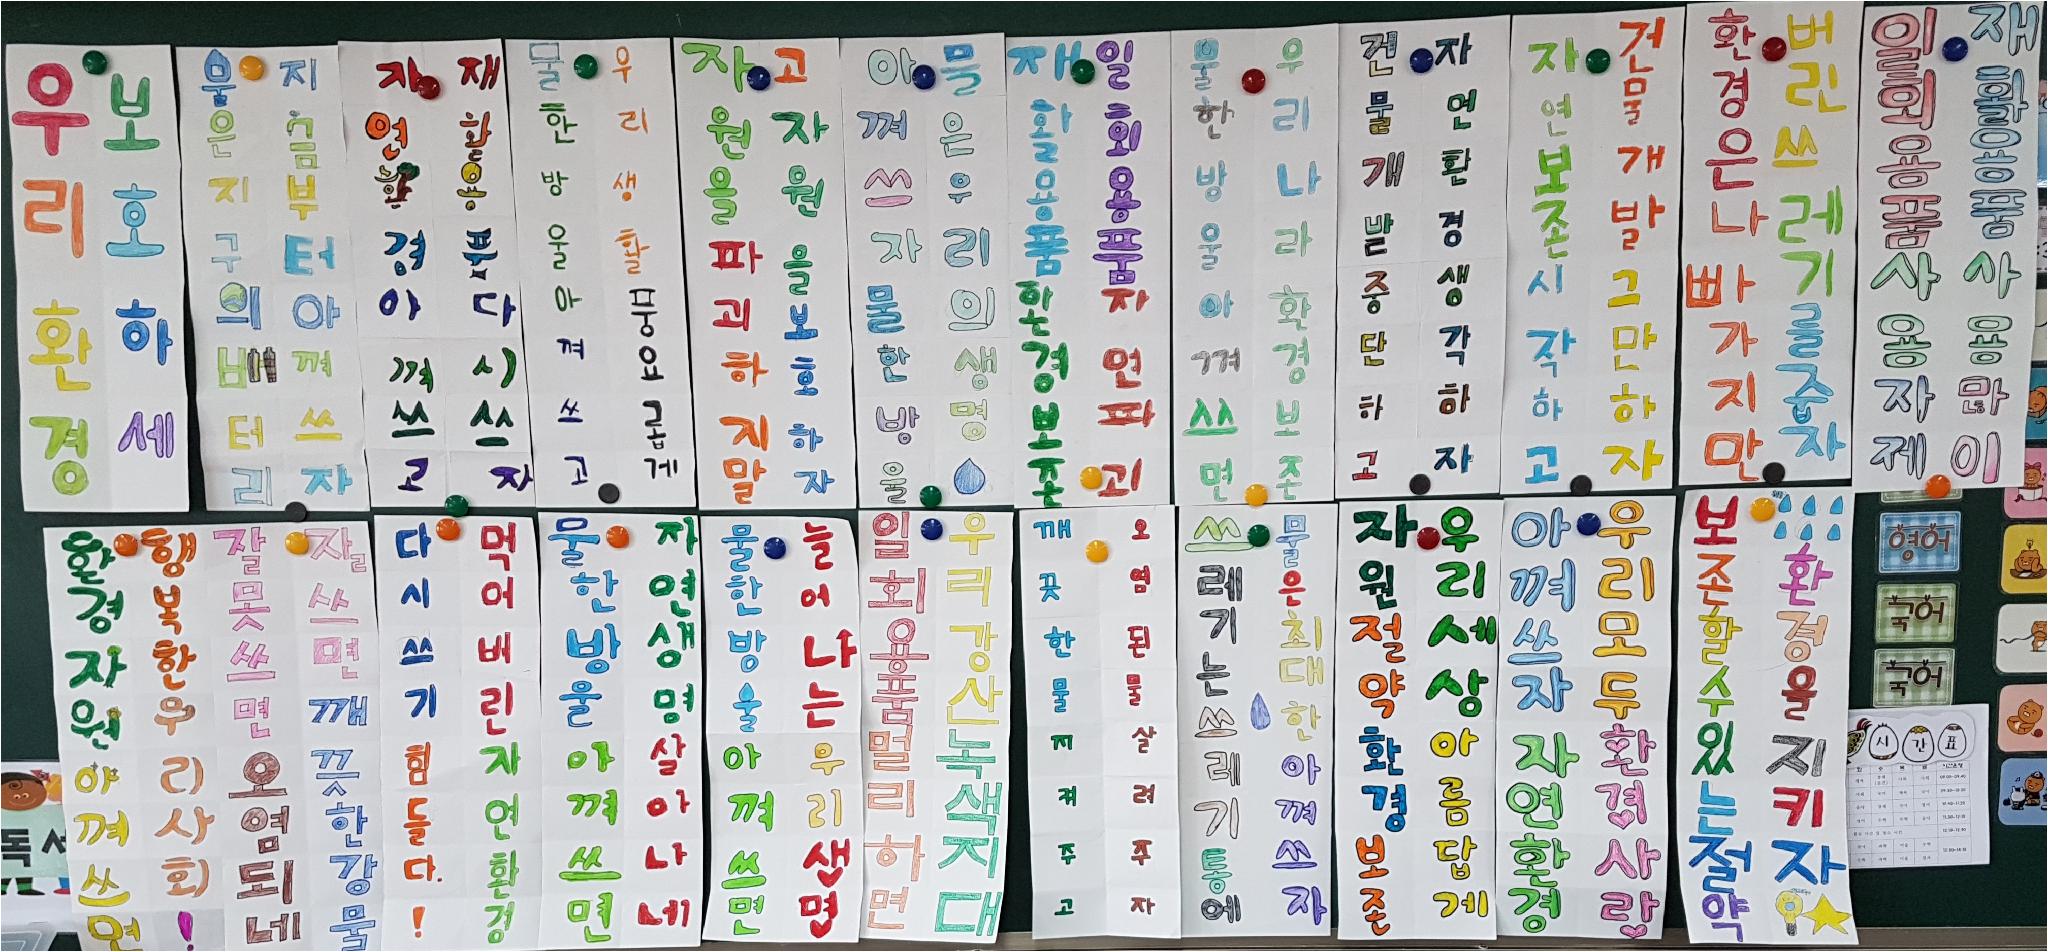 우리환경
보호하세
물은지구의배터리
지금부터아껴쓰자
자연환경아껴쓰고
재활용품다시쓰자
물한방울아껴쓰고
우리생활풍요롭게
자원을파괴하지말
고자원을보호하자
아껴쓰자물한방울
물은우리의생명
재활용품환경보존
일회용품자연파괴
물한방울아껴쓰면
우리나라환경보존
건물개발중단하고
자연환경생각하자
자연보존시작하고
건물개발그만하자
환경은나빠가지만
버린쓰레기를줍자
일회용품사용자제
재활용품사용많이
환경자원아껴쓰면
행복한우리사회!
잘못쓰면오염되네
잘쓰면깨끗한강물
다시쓰기힘들다.!
먹어버린자연환경
물한방울아껴쓰면
자연생명살아나네
물한방울아껴쓰면
늘어나는우리생명
일회용품멀리하면
우리강산녹색지대
깨끗한물지켜주고
오염된물살려주자
쓰레기는쓰레기통에
물은최대한아껴쓰자
자원절약환경보존
우리세상아름답게
아껴쓰자자연환경
우리모두환경사랑
보존할수있는절약
환경을지키자
영어
국어
국어
시간표
독서